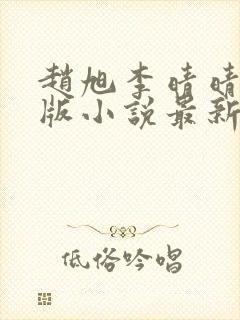 趙旭李晴晴
版小說最新
低俗吟唱